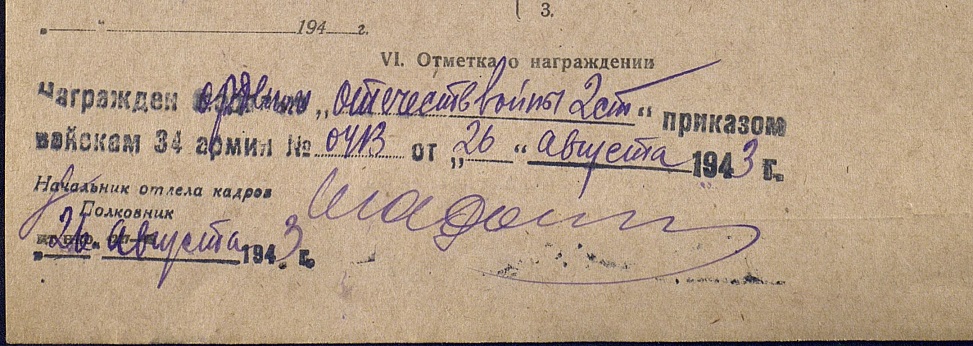 3.
„ “ 194 г.
VI. Отметка о награждении
Награжден орденом „отечеств войны 2 ст“ приказом
войскам 34 армии № 0413 от „26“ августа 1943 г.
Начальник отдела кадров
Полковник
„26“ августа 1943 г.